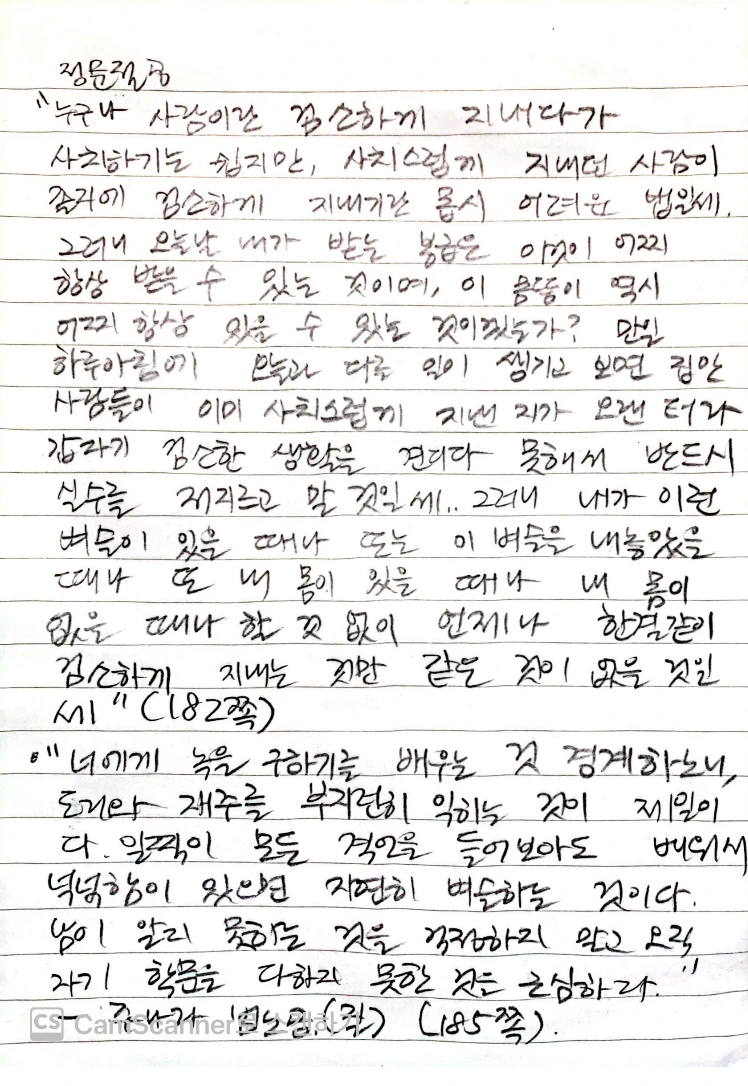 정문절공
"누구나 사람이란 검소하게 지내다가
사치하기는 쉽지만, 사치스럽게 지내던 사람이
졸지에 검소하게 지내기란 몹시 어려운 법일세.
그러니 오늘날 내가 받는 봉급은 이것이 어찌
항상 받을 수 있는 것이며, 이 몸뚱이 역시
어찌 항상 있을 수 있는 것이겠는가? 만일
하루아침에 오늘과 다른 일이 생기고 보면 집안
사람들이 이미 사치스럽게 지낸 지가 오랜 터라
갑자기 검소한 생활을 견디다 못해서 반드시
실수를 저지르고 말 것일세.. 그러니 내가 이런
벼슬이 있을 때나 또는 이 벼슬을 내놓았을
때나 또 내 몸이 있을 때나 내 몸이
없을 때나 할 것 없이 언제나 한결같이
검소하게 지내는 것만 같은 것이 없을 것일
세" (182쪽)
•"너에게 녹을 구하기를 배우는 것 경계하노니,
도리와 재주를 부지런히 익히는 것이 제일이
다. 일찍이 모든 격언을 들어보아도 배워서
넉넉함이 있으면 자연히 벼슬하는 것이다.
남이 알지 못하는 것을 걱정하지 말고 오직
자기 학문을 다하지 못한 것을 근심하라."
- (185쪽).
CS CamScanner로 스캔하기